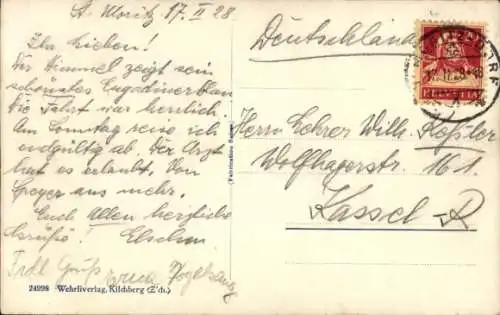 St. Moritz 17. II 28
Ihr Lieben!
Der Himmel zeigt sein
schönstes Engadinerblau
Die Fahrt war herrlich.
Am Sonntag reise ich
endgültig ab. Der Arzt
hat es erlaubt. Von
Speyer aus mehr.
Euch Allen herzliche
Grüße! Elschen.
Frdl Gruß Erica Vogelsang
24998 Wehrliverlag, Kilchberg (Zch.)
Deutschland
HELVETIA
Herrn Lehrer Wilh. Koßler
Wolfhagerstr. 161.
Kassel-R